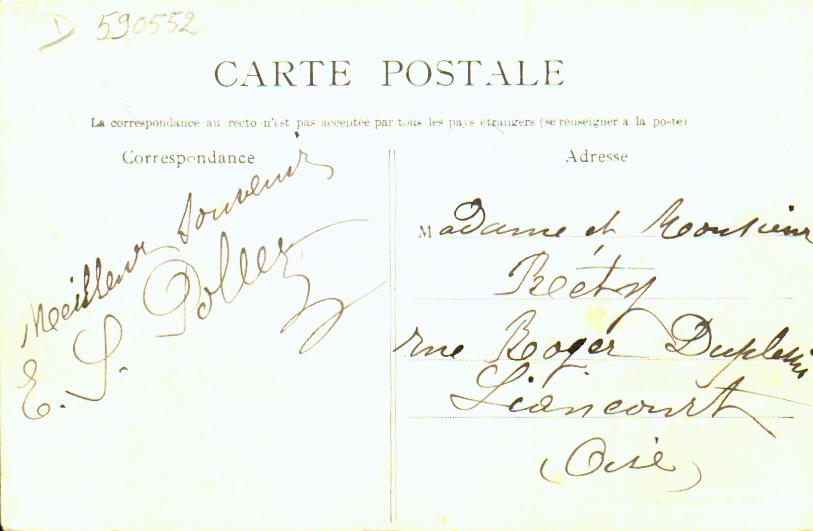 D 590552
CARTE POSTALE
La correspondance au recto n'est pas acceptée par tous les pays étrangers (se renseigner à la poste)
Correspondance
Meilleur Souvenir
E. S. Pollez
Adresse
Madame et Monsieur
Réty
rue Roger Duplessis
Liancourt
(Oise)